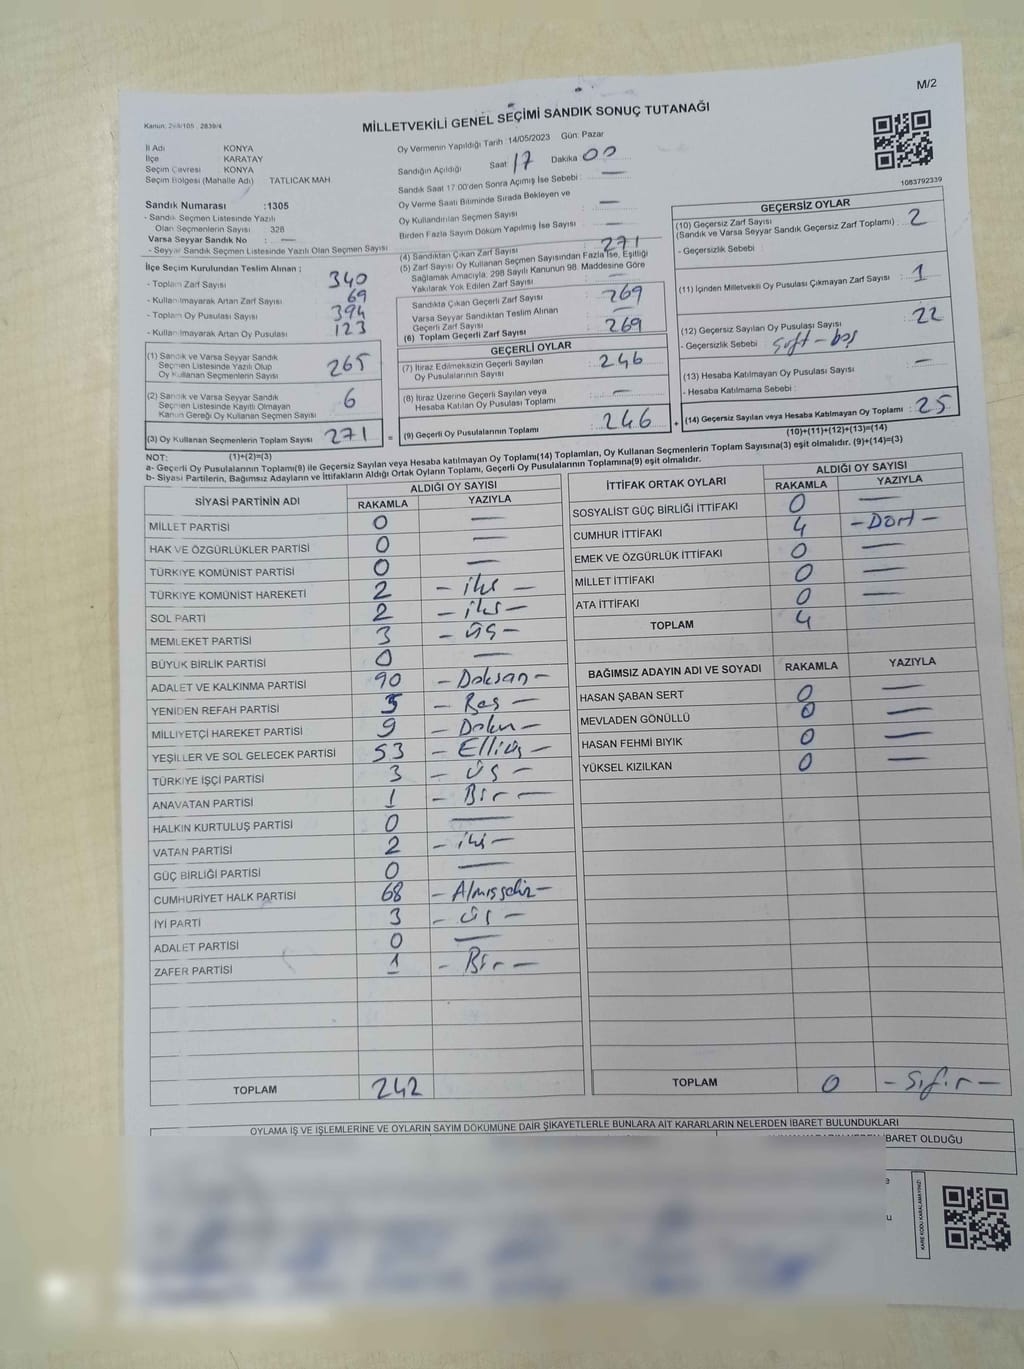 M/2
Kanun: 298/105 , 2839/4
MİLLETVEKİLİ GENEL SEÇİMİ SANDIK SONUÇ TUTANAĞI
İl Adı KONYA
İlçe KARATAY
Seçim Çevresi KONYA
Seçim Bölgesi (Mahalle Adı) TATLICAK MAH
Sandık Numarası :1305
- Sandık Seçmen Listesinde Yazılı
Olan Seçmenlerin Sayısı 328
Varsa Seyyar Sandık No : —
- Seyyar Sandık Seçmen Listesinde Yazılı Olan Seçmen Sayısı
Oy Vermenin Yapıldığı Tarih :14/05/2023 Gün: Pazar
Sandığın Açıldığı Saat 17 Dakika 00
Sandık Saat 17:00'den Sonra Açımış İse Sebebi : —
Oy Verme Saati Bitiminde Sırada Bekleyen ve
Oy Kullandırılan Seçmen Sayısı —
Birden Fazla Sayım Döküm Yapılmış İse Sayısı : —
1083792339
İlçe Seçim Kurulundan Teslim Alınan ;
- Toplam Zarf Sayısı 340
- Kullanılmayarak Artan Zarf Sayısı 69
- Toplam Oy Pusulası Sayısı 394
- Kullanılmayarak Artan Oy Pusulası 123
(1) Sandık ve Varsa Seyyar Sandık
Seçmen Listesinde Yazılı Olup
Oy Kullanan Seçmenlerin Sayısı 265
(2) Sandık ve Varsa Seyyar Sandık
Seçmen Listesinde Kayıtlı Olmayan
Kanun Gereği Oy Kullanan Seçmen Sayısı 6
(3) Oy Kullanan Seçmenlerin Toplam Sayısı 271 =
(4) Sandıktan Çıkan Zarf Sayısı 271
(5) Zarf Sayısı Oy Kullanan Seçmen Sayısından Fazla İse, Eşitliği
Sağlamak Amacıyla; 298 Sayılı Kanunun 98. Maddesine Göre
Yakılarak Yok Edilen Zarf Sayısı —
Sandıkta Çıkan Geçerli Zarf Sayısı 269
Varsa Seyyar Sandıktan Teslim Alınan
Geçerli Zarf Sayısı —
(6) Toplam Geçerli Zarf Sayısı 269
GEÇERLİ OYLAR
(7) İtiraz Edilmeksizin Geçerli Sayılan
Oy Pusulalarının Sayısı : 246
(8) İtiraz Üzerine Geçerli Sayılan veya
Hesaba Katılan Oy Pusulası Toplamı : —
(9) Geçerli Oy Pusulalarının Toplamı : 246 +
GEÇERSİZ OYLAR
(10) Geçersiz Zarf Sayısı
(Sandık ve Varsa Seyyar Sandık Geçersiz Zarf Toplamı) : 2
- Geçersizlik Sebebi :
(11) İçinden Milletvekili Oy Pusulası Çıkmayan Zarf Sayısı : 1
(12) Geçersiz Sayılan Oy Pusulası Sayısı : 22
- Geçersizlik Sebebi :
(13) Hesaba Katılmayan Oy Pusulası Sayısı : —
- Hesaba Katılmama Sebebi :
(14) Geçersiz Sayılan veya Hesaba Katılmayan Oy Toplamı : 25
(10)+(11)+(12)+(13)=(14)
NOT: (1)+(2)=(3)
a- Geçerli Oy Pusulalarının Toplamı(9) ile Geçersiz Sayılan veya Hesaba katılmayan Oy Toplamı(14) Toplamları, Oy Kullanan Seçmenlerin Toplam Sayısına(3) eşit olmalıdır. (9)+(14)=(3)
b- Siyasi Partilerin, Bağımsız Adayların ve İttifakların Aldığı Ortak Oyların Toplamı, Geçerli Oy Pusulalarının Toplamına(9) eşit olmalıdır.
SİYASİ PARTİNİN ADI ALDIĞI OY SAYISI
RAKAMLA YAZIYLA
MİLLET PARTİSİ 0 —
HAK VE ÖZGÜRLÜKLER PARTİSİ 0 —
TÜRKİYE KOMÜNİST PARTİSİ 0 —
TÜRKİYE KOMÜNİST HAREKETİ 2 - iki -
SOL PARTİ 2 - iki -
MEMLEKET PARTİSİ 3 - üç -
BÜYÜK BİRLİK PARTİSİ 0 —
ADALET VE KALKINMA PARTİSİ 90 - Doksan -
YENİDEN REFAH PARTİSİ 5 - Beş -
MİLLİYETÇİ HAREKET PARTİSİ 9 - Dokuz -
YEŞİLLER VE SOL GELECEK PARTİSİ 53 - Elliüç -
TÜRKİYE İŞÇİ PARTİSİ 3 - üç -
ANAVATAN PARTİSİ 1 - Bir -
HALKIN KURTULUŞ PARTİSİ 0 —
VATAN PARTİSİ 2 - iki -
GÜÇ BİRLİĞİ PARTİSİ 0 —
CUMHURİYET HALK PARTİSİ 68 - Almışsekiz -
İYİ PARTİ 3 - üç -
ADALET PARTİSİ 0 —
ZAFER PARTİSİ 1 - Bir -
TOPLAM 242
İTTİFAK ORTAK OYLARI ALDIĞI OY SAYISI
RAKAMLA YAZIYLA
SOSYALİST GÜÇ BİRLİĞİ İTTİFAKI 0 —
CUMHUR İTTİFAKI 4 - Dört -
EMEK VE ÖZGÜRLÜK İTTİFAKI 0 —
MİLLET İTTİFAKI 0 —
ATA İTTİFAKI 0 —
TOPLAM 4
BAĞIMSIZ ADAYIN ADI VE SOYADI RAKAMLA YAZIYLA
HASAN ŞABAN SERT 0 —
MEVLADEN GÖNÜLLÜ 0 —
HASAN FEHMİ BIYIK 0 —
YÜKSEL KIZILKAN 0 —
TOPLAM 0 - Sıfır -
OYLAMA İŞ VE İŞLEMLERİNE VE OYLARIN SAYIM DÖKÜMÜNE DAİR ŞİKAYETLERLE BUNLARA AİT KARARLARIN NELERDEN İBARET BULUNDUKLARI
İBARET OLDUĞU
KARE KODU KARALAMAYINIZ!